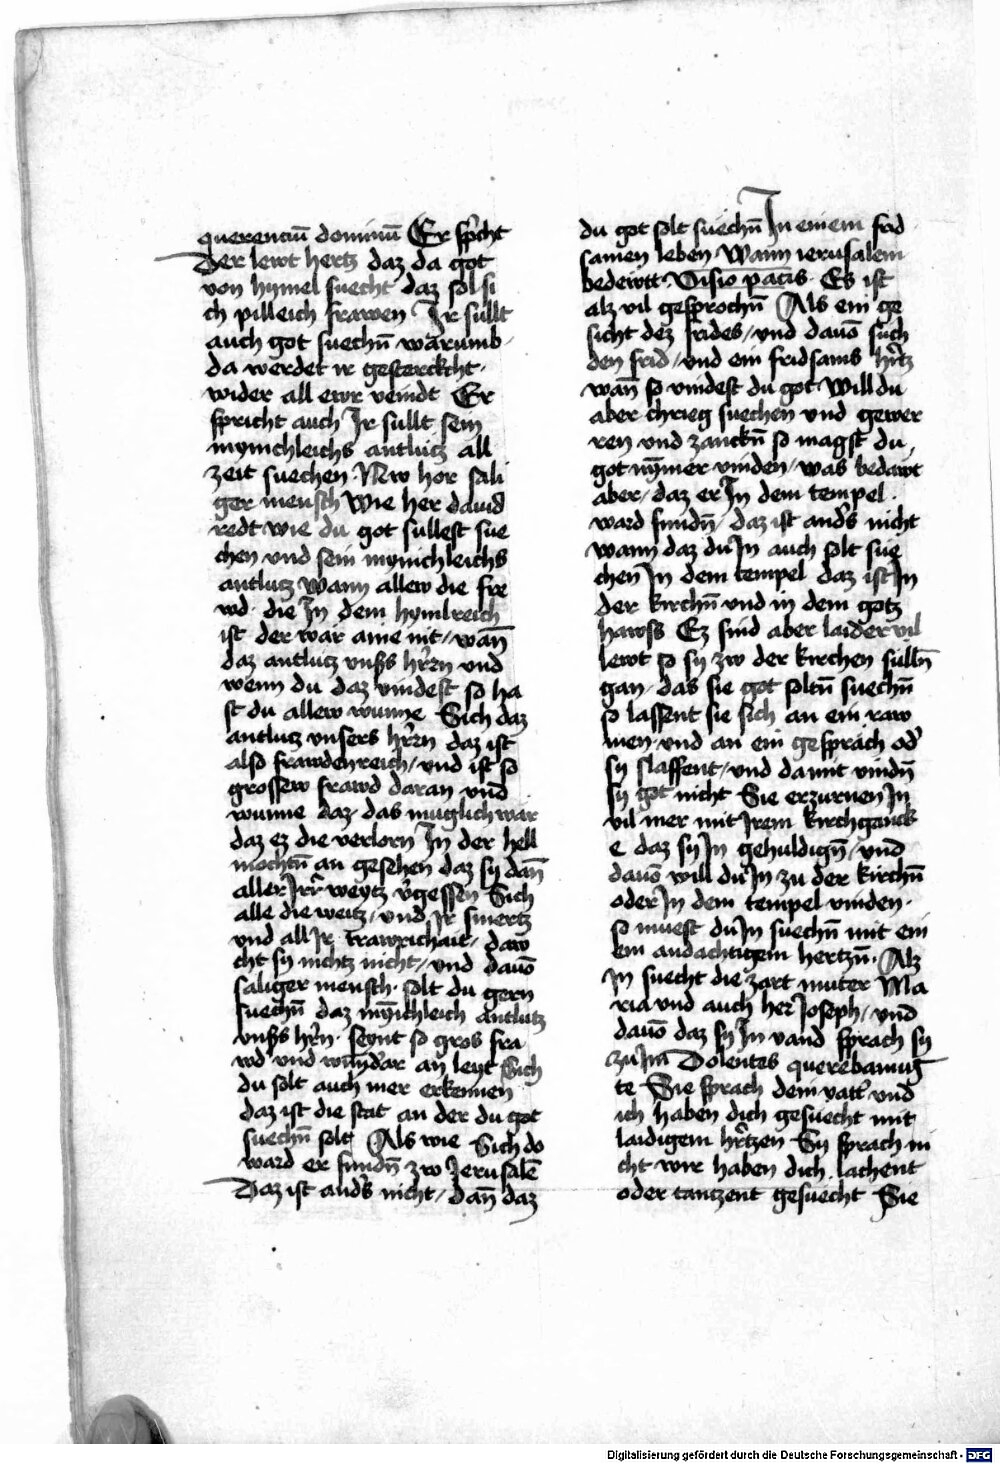 querenciū dominū Er sp̄cht
Der lewt hertz daz da got
von hymel suecht daz sol si
ch pilleich frawen Ir sullt
auch got suechn̄ warumb
da werdet ir gesterckcht
wider all ewr veindt Er
spricht auch Ir sullt sein
mynichleichs antlutz all
zeit suechen Nw hor sali
ger mensch Wie her dauid
redt wie du got sullest sue
chen vnd sein mynichleichs
antlutz Wann allew die fre
wd die In dem hymlreich
ist der war aine nit wan̄
daz antlutz vnsers hr̄rn vnd
wenn du daz vindest so ha
st du allew wunne Sich daz
antlutz vnsers hr̄rn daz ist
also frawdenreich vnd ist so
grossew frawd daran vnd
wunne daz das muglich war
daz ez die verlorn In der hell
mochtn̄ an gesehen daz sy dan̄
aller Irr weytz v̄gessen Sich
alle die weitz vnd Ir smertz
vnd all Ir trawrichait daw
cht sy nichtz nicht vnd dauō
saliger mensch solt du gern
suechn̄ daz myn̄ichleich antlutz
vnsers hr̄rn seynt so gros fra
wd vnd wunn̄dar an leyt Sich
du solt auch mer erkennen
daz ist die stat an der du got
suechn̄ solt Als wie Sich do
ward er fundn̄ zw Jerusalē
Daz ist and's nicht dan̄ daz
du got solt suechn̄ In einem frid
samen leben Wann ierusalem
bedewtt Visio pacis Es ist
alz vil gesprochn̄ Als ein ge
sicht dez frides vnd dauō such
den frid vnd ein fridsams hr̄tz
wan̄ so vindest du got Will du
aber chrieg suechen vnd gewer
ren vnd zanckn̄ so magst du
got nȳmer vinden was bedawt
aber daz er In dem tempel
ward fundn̄ daz ist and's nicht
wann daz du In auch solt sue
chen In dem tempel daz ist In
der kirchn̄ vnd in dem gotz
hawss Ez sind aber laider vil
lewt so sy zw der kirchen sulln̄
gan das sie got soltn̄ suechn̄
so lassent sie sich an ein raw
men vnd an ein gesprach od'
sy slaffent vnd damit vindn̄
sy got nicht Sie erzurnen In
vil mer mit Irem kirchganck
e daz sy In gehuldign̄ vnd
dauō will du In zu der kirchn̄
oder In dem tempel vinden
so muest du In suechn̄ mit ein
em andachtigem hertzn̄ Alz
In suecht die zart muter Ma
ria vnd auch her Joseph vnd
dauō daz sy In vand sprach sy
zu Im Dolentes querebamus
te Sie sprach dein vatt' vnd
ich haben dich gesuecht mit
laidigem hr̄tzen Sy sprach ni
cht wir haben dich lachent
oder tantzent gesuecht Sie
Digitalisierung gefördert durch die Deutsche Forschungsgemeinschaft - DFG